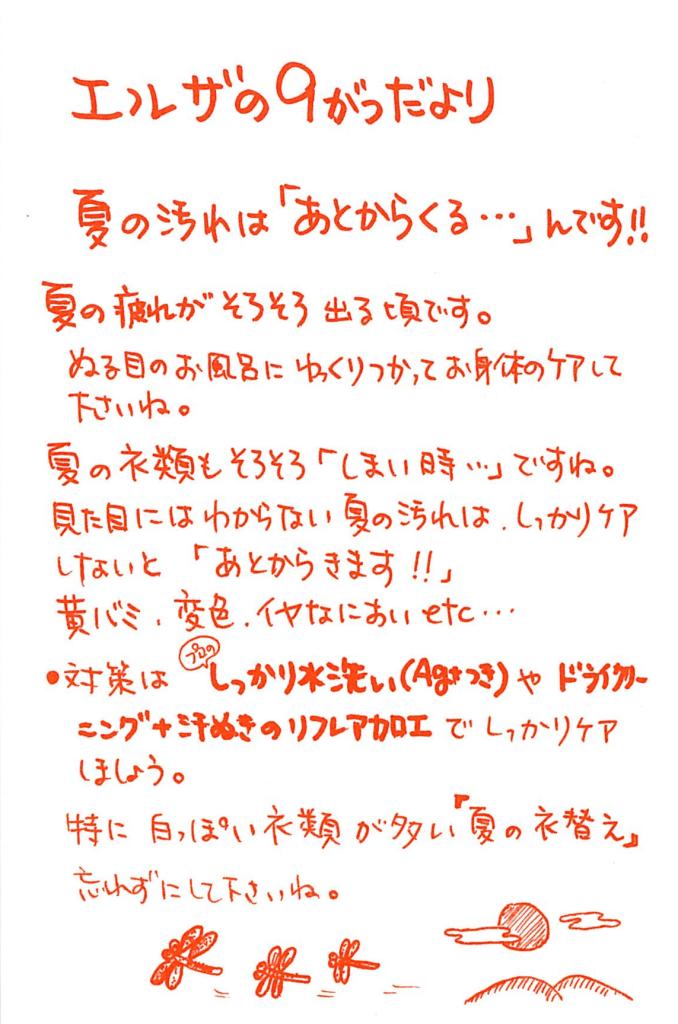 エルザの9がつだより
夏の汚れは「あとからくる…」んです!!
夏の疲れがそろそろ出る頃です。
ぬる目のお風呂にゆっくりつかってお身体のケアして
下さいね。
夏の衣類もそろそろ「しまい時…」ですね。
見た目にはわからない夏の汚れは、しっかりケア
しないと「あとからきます!!」
黄バミ、変色、イヤなにおいetc…
•対策はプロのしっかり水洗い(Ag+つき)やドライクリー
ニング+汗ぬきのリフレア加工でしっかりケア
しましょう。
特に白っぽい衣類が多い『夏の衣替え』
忘れずにして下さいね。